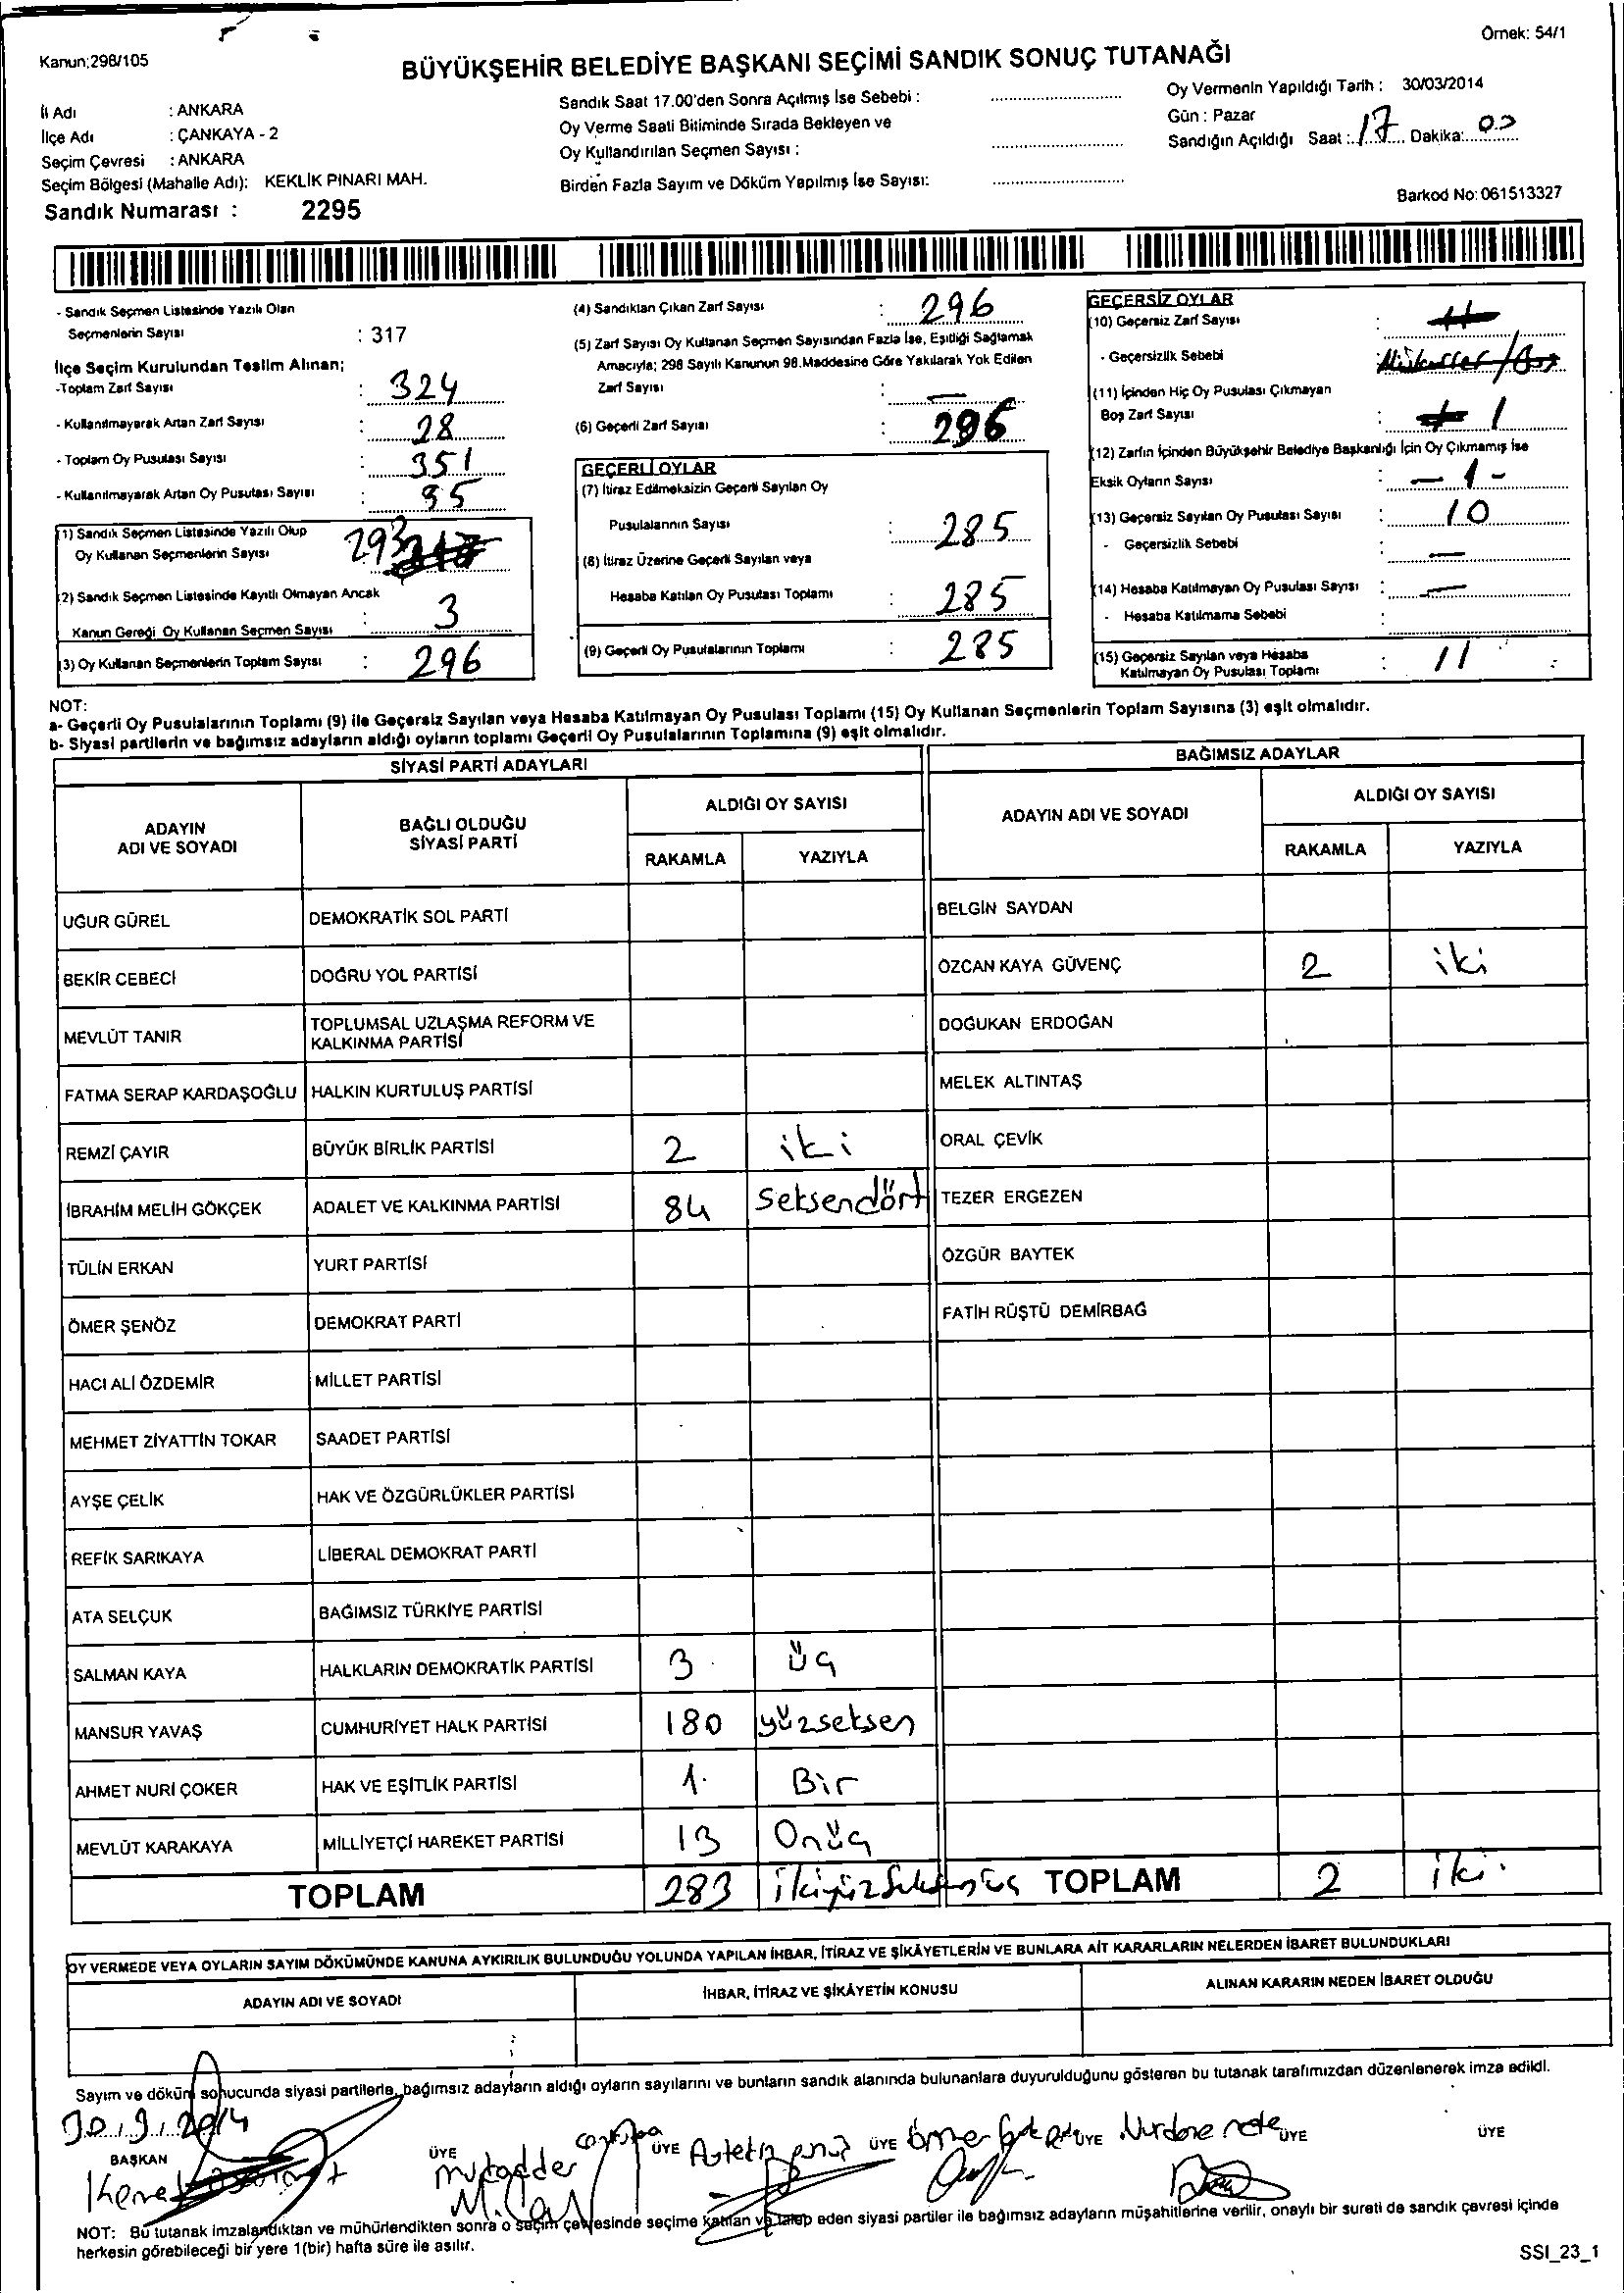 Örnek: 54/1
Kanun;298/105
BÜYÜKŞEHİR BELEDİYE BAŞKANI SEÇİMİ SANDIK SONUÇ TUTANAĞI
İl Adı : ANKARA
İlçe Adı : ÇANKAYA - 2
Seçim Çevresi : ANKARA
Seçim Bölgesi (Mahalle Adı): KEKLİK PINARI MAH.
Sandık Numarası : 2295
Sandık Saat 17.00'den Sonra Açılmış İse Sebebi :
Oy Verme Saati Bitiminde Sırada Bekleyen ve
Oy Kullandırılan Seçmen Sayısı :
Birden Fazla Sayım ve Döküm Yapılmış İse Sayısı:
Oy Vermenin Yapıldığı Tarih : 30/03/2014
Gün : Pazar
Sandığın Açıldığı Saat : 17 Dakika: 00
Barkod No: 061513327
- Sandık Seçmen Listesinde Yazılı Olan
Seçmenlerin Sayısı : 317
İlçe Seçim Kurulundan Teslim Alınan;
-Toplam Zarf Sayısı : 324
- Kullanılmayarak Artan Zarf Sayısı : 28
- Toplam Oy Pusulası Sayısı : 351
- Kullanılmayarak Artan Oy Pusulası Sayısı :
(1) Sandık Seçmen Listesinde Yazılı Olup
Oy Kullanan Seçmenlerin Sayısı 293
(2) Sandık Seçmen Listesinde Kayıtlı Olmayan Ancak
Kanun Gereği Oy Kullanan Seçmen Sayısı : 3
(3) Oy Kullanan Seçmenlerin Toplam Sayısı : 296
(4) Sandıktan Çıkan Zarf Sayısı : 296
(5) Zarf Sayısı Oy Kullanan Seçmen Sayısından Fazla İse, Eşitliği Sağlamak
Amacıyla; 298 Sayılı Kanunun 98.Maddesine Göre Yakılarak Yok Edilen
Zarf Sayısı : —
(6) Geçerli Zarf Sayısı : 296
GEÇERLİ OYLAR
(7) İtiraz Edilmeksizin Geçerli Sayılan Oy
Pusulalarının Sayısı : 285
(8) İtiraz Üzerine Geçerli Sayılan veya
Hesaba Katılan Oy Pusulası Toplamı : 285
(9) Geçerli Oy Pusulalarının Toplamı : 285
GEÇERSİZ OYLAR
(10) Geçersiz Zarf Sayısı :
- Geçersizlik Sebebi :
(11) İçinden Hiç Oy Pusulası Çıkmayan
Boş Zarf Sayısı : 1
(12) Zarfın İçinden Büyükşehir Belediye Başkanlığı İçin Oy Çıkmamış İse
Eksik Oyların Sayısı : - 1 -
(13) Geçersiz Sayılan Oy Pusulası Sayısı : 10
- Geçersizlik Sebebi : —
(14) Hesaba Katılmayan Oy Pusulası Sayısı : —
- Hesaba Katılmama Sebebi :
(15) Geçersiz Sayılan veya Hesaba
Katılmayan Oy Pusulası Toplamı : 11
NOT:
a- Geçerli Oy Pusulalarının Toplamı (9) ile Geçersiz Sayılan veya Hesaba Katılmayan Oy Pusulası Toplamı (15) Oy Kullanan Seçmenlerin Toplam Sayısına (3) eşit olmalıdır.
b- Siyasi partilerin ve bağımsız adayların aldığı oyların toplamı Geçerli Oy Pusulalarının Toplamına (9) eşit olmalıdır.
SİYASİ PARTİ ADAYLARI
ADAYIN
ADI VE SOYADI
BAĞLI OLDUĞU
SİYASİ PARTİ
ALDIĞI OY SAYISI
RAKAMLA YAZIYLA
UĞUR GÜREL DEMOKRATİK SOL PARTİ
BEKİR CEBECİ DOĞRU YOL PARTİSİ
MEVLÜT TANIR TOPLUMSAL UZLAŞMA REFORM VE
KALKINMA PARTİSİ
FATMA SERAP KARDAŞOĞLU HALKIN KURTULUŞ PARTİSİ
REMZİ ÇAYIR BÜYÜK BİRLİK PARTİSİ 2 iki
İBRAHİM MELİH GÖKÇEK ADALET VE KALKINMA PARTİSİ 84 Seksendört
TÜLİN ERKAN YURT PARTİSİ
ÖMER ŞENÖZ DEMOKRAT PARTİ
HACI ALİ ÖZDEMİR MİLLET PARTİSİ
MEHMET ZİYATTİN TOKAR SAADET PARTİSİ
AYŞE ÇELİK HAK VE ÖZGÜRLÜKLER PARTİSİ
REFİK SARIKAYA LİBERAL DEMOKRAT PARTİ
ATA SELÇUK BAĞIMSIZ TÜRKİYE PARTİSİ
SALMAN KAYA HALKLARIN DEMOKRATİK PARTİSİ 3 Üç
MANSUR YAVAŞ CUMHURİYET HALK PARTİSİ 180 yüzseksen
AHMET NURİ ÇOKER HAK VE EŞİTLİK PARTİSİ 1 Bir
MEVLÜT KARAKAYA MİLLİYETÇİ HAREKET PARTİSİ 13 Onüç
TOPLAM 283 ikiyüzseksenüç
BAĞIMSIZ ADAYLAR
ADAYIN ADI VE SOYADI
ALDIĞI OY SAYISI
RAKAMLA YAZIYLA
BELGİN SAYDAN
ÖZCAN KAYA GÜVENÇ 2 iki
DOĞUKAN ERDOĞAN
MELEK ALTINTAŞ
ORAL ÇEVİK
TEZER ERGEZEN
ÖZGÜR BAYTEK
FATİH RÜŞTÜ DEMİRBAĞ
TOPLAM 2 iki
OY VERMEDE VEYA OYLARIN SAYIM DÖKÜMÜNDE KANUNA AYKIRILIK BULUNDUĞU YOLUNDA YAPILAN İHBAR, İTİRAZ VE ŞİKÂYETLERİN VE BUNLARA AİT KARARLARIN NELERDEN İBARET BULUNDUKLARI
ADAYIN ADI VE SOYADI İHBAR, İTİRAZ VE ŞİKÂYETİN KONUSU ALINAN KARARIN NEDEN İBARET OLDUĞU
Sayım ve döküm sonucunda siyasi partilerle, bağımsız adayların aldığı oyların sayılarını ve bunların sandık alanında bulunanlara duyurulduğunu gösteren bu tutanak tarafımızdan düzenlenerek imza edildi.
30.3.2014
BAŞKAN ÜYE ÜYE ÜYE ÜYE ÜYE ÜYE
NOT: Bu tutanak imzalandıktan ve mühürlendikten sonra o seçim çevresinde seçime katılan ve talep eden siyasi partiler ile bağımsız adayların müşahitlerine verilir, onaylı bir sureti de sandık çevresi içinde
herkesin görebileceği bir yere 1(bir) hafta süre ile asılır.
SSI_23_1